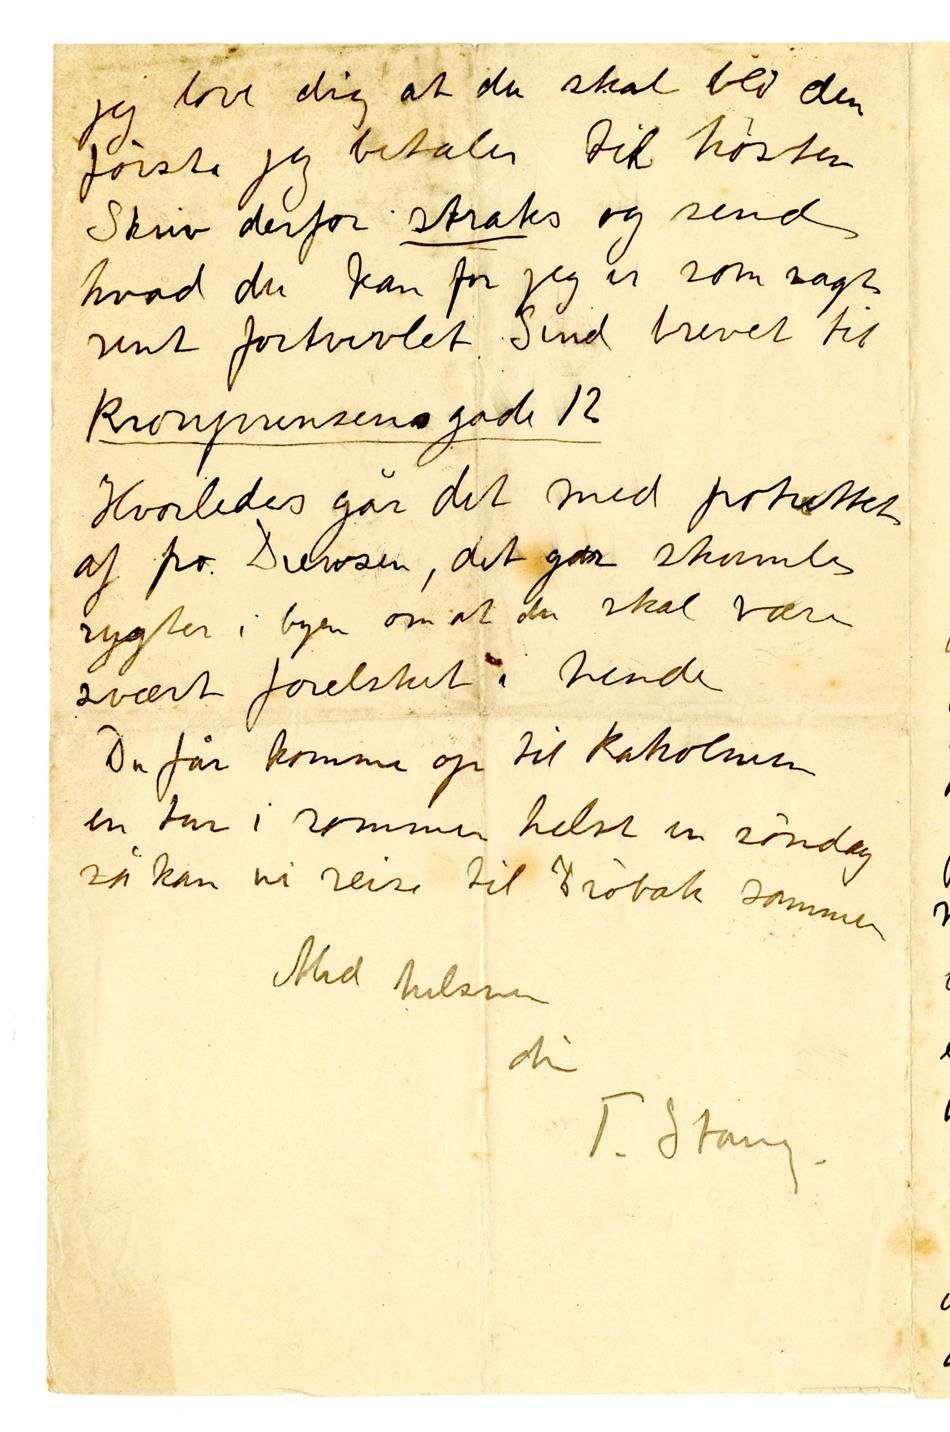 jeg love dig at du skal bli den
første jeg betaler til høsten
Skriv derfor straks og send
hvad du kan for jeg er som sagt
rent fortvivlet. Send brevet til
Kronprinsensgade 12
Hvorledes går det med potrettet
af fr. Diewsen, det går skumle
rygter i byen om at du skal være
svært forelsket i hende
Du får komme op til Kaholmen
en tur i sommer helst en søndag
så kan vi reise til Drøbak sammen
Med hilsnen
din
T. Stang.